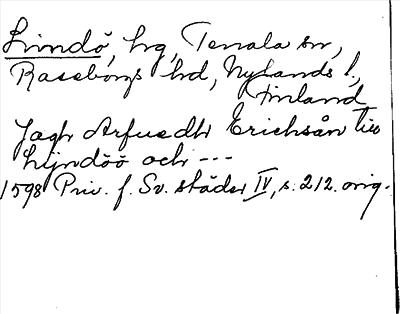 Lindö, hg, Tenala sn,
Raseborgs hd, Nylands l.,
Finland
Jagh Arfuedh Erichsån till
Lijndöö och ---
1598 Priv. f. Sv. städer IV, s. 212. orig.